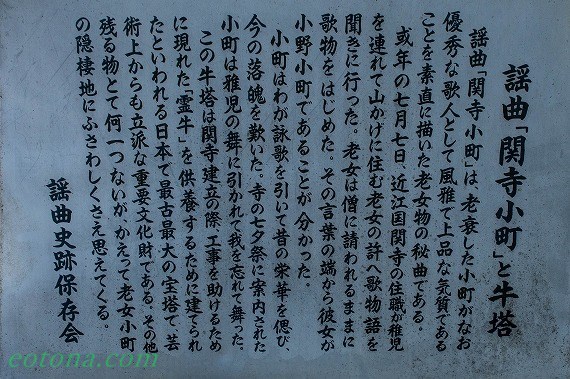 謡曲「関寺小町」と牛塔
謡曲「関寺小町」は、老衰した小町がなお
優秀な歌人として風雅で上品な気質である
ことを素直に描いた老女物の秘曲である。
或年の七月七日、近江国関寺の住職が稚児
を連れて山かげに住む老女の許へ歌物語を
聞きに行った。老女は僧に請われるままに
歌物をはじめた。その言葉の端から彼女が
小野小町であることが分かった。
小町はわが詠歌を引いて昔の栄華を偲び、
今の落魄を歎いた。寺の七夕祭に案内された
小町は雅児の舞に引かれて我を忘れて舞った。
この牛塔は関寺建立の際、工事を助けるため
に現れた「霊牛」を供養するために建てられ
たといわれる日本で最古最大の宝塔で、芸
術上からも立派な重要文化財である。その他
残る物とて何一つないが、かえって老女小町
の隠棲地にふさわしくさえ思えてくる。
謡曲史跡保存会
eotona.com